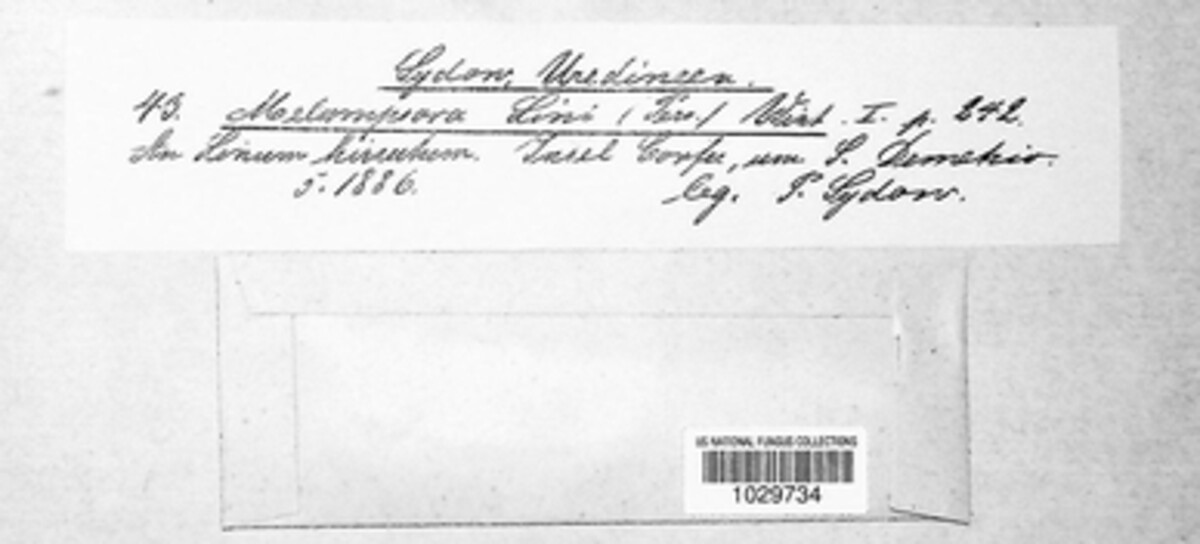 Sydow, Uredineen.
43. Melampsora Lini (Pers.) Wint. I. p. 242.
An Linum hirsutum. Insel Corfu, um S. Demetrio.
5. 1886. leg. P. Sydow.
US NATIONAL FUNGUS COLLECTIONS
1029734